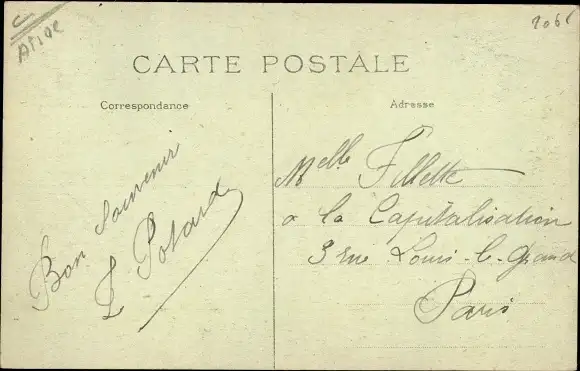 CARTE POSTALE
Correspondance
Bon souvenir
L Potard
Adresse
Melle Fillette
à la Capitalisation
3 rue Louis-le-Grand
Paris